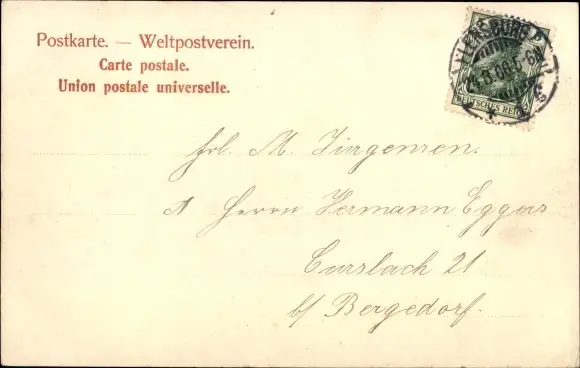 Postkarte. — Weltpostverein.
Carte postale.
Union postale universelle.
FLENSBURG
DEUTSCHES REICH
Frl. M. Jürgensen.
Herrn Hermann Eggers
Curslach 21
b/ Bergedorf.